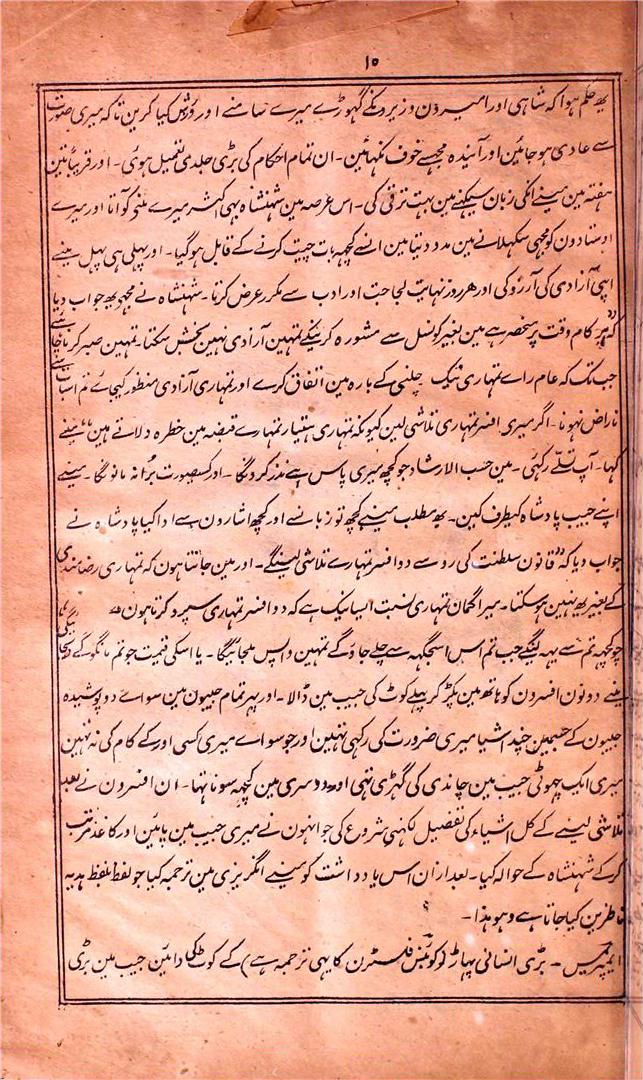 ۱۰
یھ حکم ہوا کہ شاہی اور امیرون وزیرونکے گہوڑے میرے سامنے اور ورزش کیا کرین تاکہ میری صورت
سے عادی ہوجائین اور آیندہ مجھسے خوف نکہائین۔ ان تمام احکام کی بڑی جلدی تعمیل ہوئی۔ اور قریباً تین
ہفتہ مین مینے انکی زبان سیکہنے مین بہت ترقی کی۔ اس عرصہ مین شہنشاہ بہی اکثر میرے ملنے کو آتا اور میرے
اوستادون کو مجہے سکہلانے مین مدد دیتا مین انسے کچہہ بات چیت کرنے کے قابل ہوگیا۔ اور پہلی ہی پہل مینے
اپنی آزادی کی آرزو کی اور ہر روز نہایت لجاجت اور ادب سے مکرر عرض کرتا۔ شہنشاہ نے مجہو یھ جواب دیا
کہ ہر کام وقت پر منحصر ہے مین بغیر کونسل سے مشورہ کرنیکے تمہین آزادی نہین بخش سکتا۔ تمہین صبر کرنا چاہئے
جب تک کہ عام راے تمہاری نیک چلنی کے بارہ مین اتفاق کرے اور تمہاری آزادی منظور کیجاے تم اس بات سے
ناراض نہونا۔ اگر میری افسر تمہاری تلاشی لین کیونکہ تمہاری ہتیار تمہارے قبضہ مین خطرہ دلاتے ہین" مینے
کہا۔ آپ تسلے رکہئی۔ مین حسب الارشاد جو کچھ میری پاس ہے نذر کرونگا۔ اور کسیصورت برا نہ مانونگا۔ مینے
اپنے جیب پادشاہ کیطرف کین۔ یھ مطلب مینے کچھ تو زبانے اور کچھ اشارون سے ادا کیا پادشاہ نے
جواب دیا کہ "قانون سلطنت کی رو سے دو افسر تمہارے تلاشی لینگے۔ اور مین جانتا ہون کہ تمہاری رضامندی
کے بغیر یھ نہین ہوسکتا۔ میرا گمان تمہاری نسبت ایسا نیک ہے کہ دو افسر تمہاری سپرد کرتا ہون
جو کچہہ تم سے یہہ لینگے جب تم اس جگہہ سے چلے جاوگے تمہین واپس ملجائیگا۔ یا اسکی قیمت جو تم مانگوگے دیجائیگی"
مینے دونون افسرون کو ہاتھ مین پکڑ کر پہلے کوٹ کی جیب مین ڈالا۔ اور پہر تمام جیبون مین سواے دو پوشیدہ
جیبون کے جسمین چند اشیا میری ضرورت کی رکہی تہین اور جو سواے میری کسی اور کے کام کی نہ تہین
میری ایک چہوٹی جیب مین چاندی کی گہڑی تہی اور دوسری مین کچہہ سونا تہا۔ ان افسرون نے بعد
تلاشی لینے کے کل اشیاء کی تفصیل لکہنی شروع کی جو انہون نے میری جیب مین پائین اور کاغذ مرتب
کرکے شہنشاہ کے حوالہ کیا۔ بعد ازان اس یادداشت کو مینے انگریزی مین ترجمہ کیا جو لفظ بلفظ ہدیہ
ناظرین کیا جاتا ہے وہو ہذا۔
بڑی انسانی پہاڑ کا یہی ترجمہ ہے) کے کوٹ کی دائین جیب مین بڑی